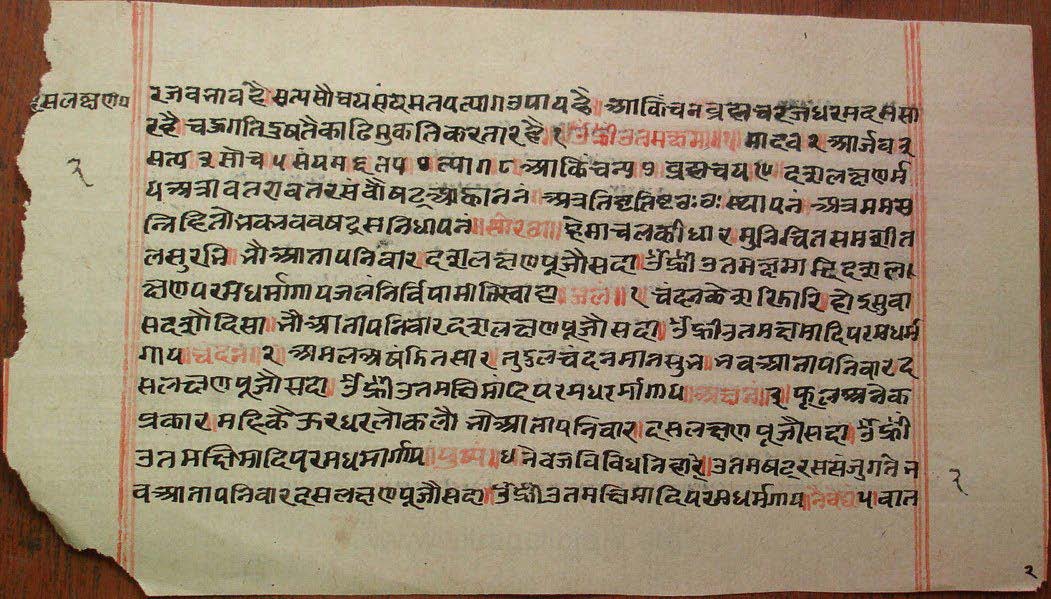 दसलक्षणप
रजवनाव है सत्य सौच यसंयमतपत्याग उपाय है आकिंचन ब्रह्मचरजधरमदससा
र है चऊगतिदुषतै काढिमुकतिकरतार है १ ॐ ह्रीं उतमक्षमा १ मादव २ आर्जव ३
सत्य ४ सौच ५ संयम ६ तप ७ त्याग ८ आकिंचन्य ९ ब्रह्मचय १० दशलक्षणर्म
य अत्रावतरावतर सर्वौषट् आह्वाननं अत्र तिष्ट तिष्ट ठः ठः स्थापनं अत्र मम स
न्निहितो भव भव वषट् सनिधापनं सोरठा हेमाचल की धार मुनि चित सम शीत
ल सुरभि भौ आताप निवार दशलक्षण पूजौ सदा ॐ ह्रीं उतमक्षमादि दशल
क्षण परमधर्मागाय जलं निर्विपामीति स्वाहा जलं १ चंदन केशरि गारि हो इ सुवा
स दशौ दिसा भौ आताप निवार दशलक्षण पूजौ सदा ॐ ह्रीं उतमक्षमादि परमधर्म
गाय चंदनं २ अमल अषंडित सार तंदुल चंदन मान सुभ भव आताप निवार द
सलक्षण पूजौ सदा ॐ ह्रीं उतमक्षिमादि परमधर्मागाय अक्षतं ३ फूल अनेक
प्रकार महिकै ऊरध लोक लौ भौ आताप निवार दसलक्षण पूजौ सदा ॐ ह्रीं
उतमक्षिमादि परमधर्मागाय पुष्पं ४ नेवज विविध निहारे उतम षट्रस संजुगत भ
व आताप निवार दसलक्षण पूजौ सदा ॐ ह्रीं उतमक्षिमादि परमधर्मगाय नैवेद्यं ५ वात
२
२
२